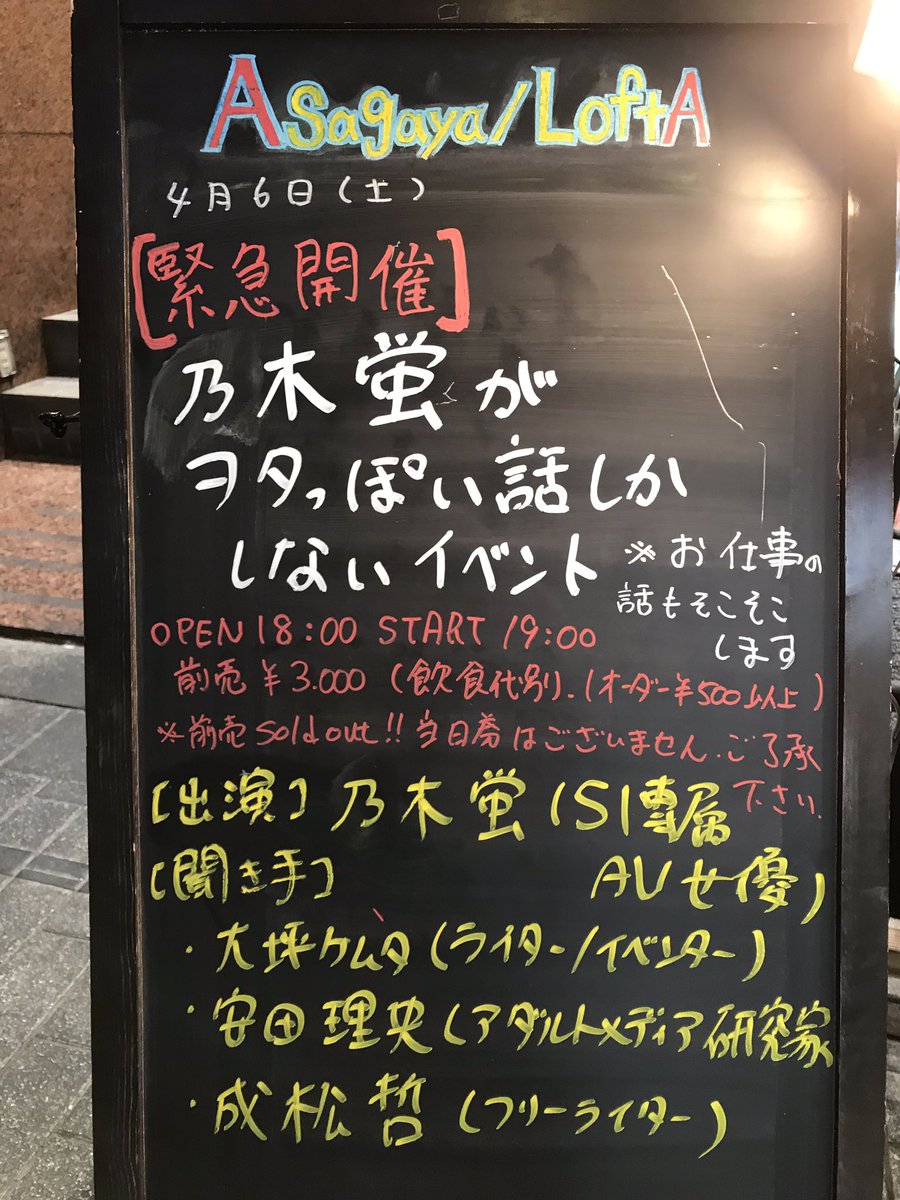 Asagaya/LoftA
4月6日(土)
[緊急開催]
乃木蛍が
ヲタっぽい話しか
しないイベント
※お仕事の
話もそこそこ
します
OPEN 18:00 START 19:00
前売¥3.000(飲食代別.(オーダー¥500以上)
※前売soldout!!当日券はございません.ご了承
下さい.
[出演]乃木蛍(S1専属
AV女優)
[聞き手]
・大坪ケムタ(ライター/イベンター)
・安田理央(アダルトメディア研究家
・成松哲(フリーライター)